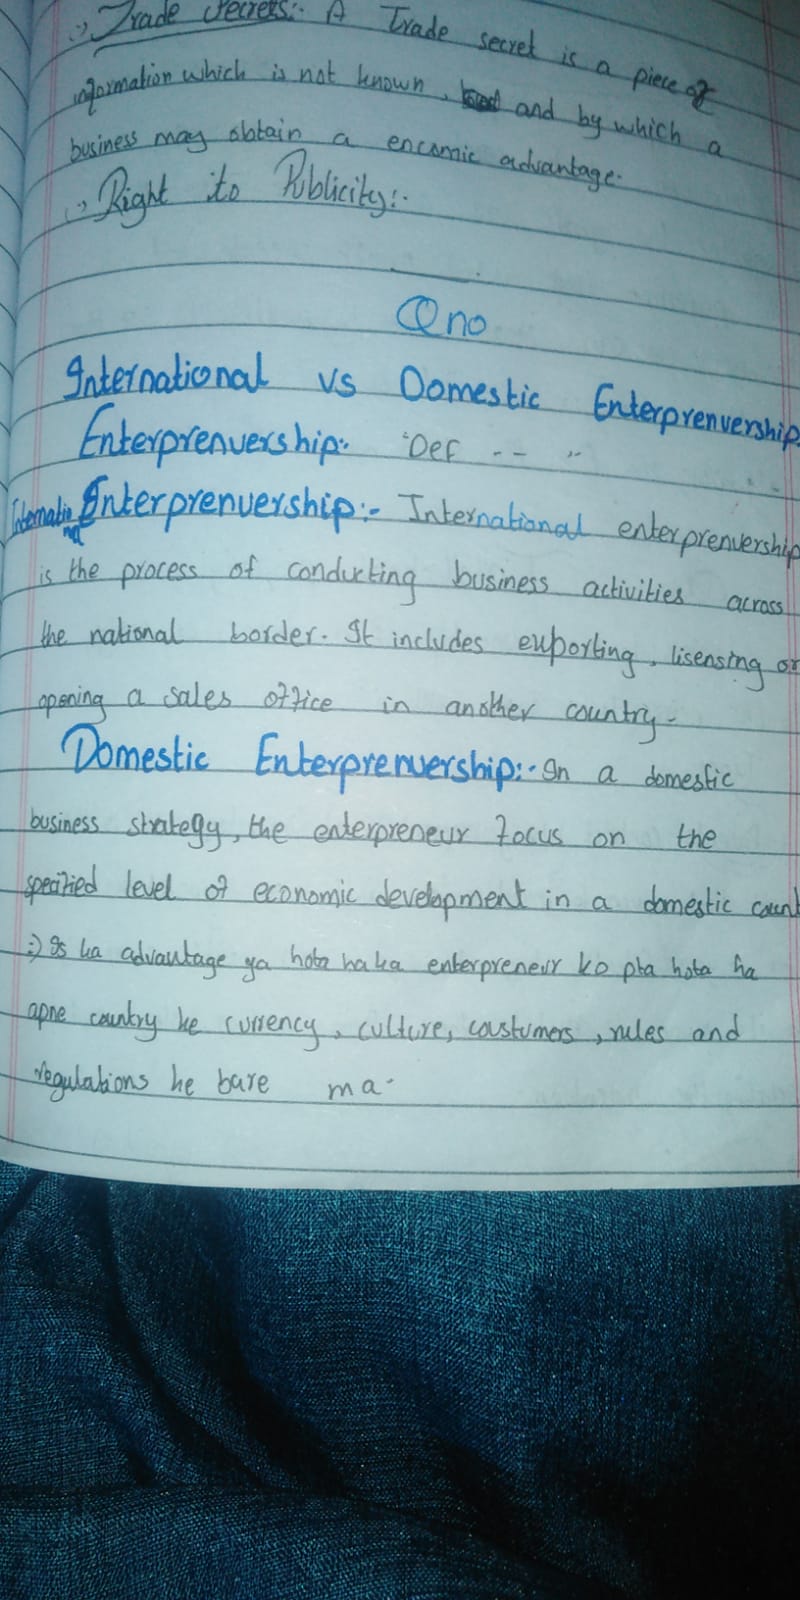 :) Trade Secrets:. A Trade secret is a piece of
information which is not known, and by which a
business may obtain a encomic advantage.
:) Right to Publicity:.
Qno
International vs Domestic Enterprenuership.
Enterprenuership:. Def -- "
International Enterprenuership:- International enterprenuership
is the process of conducting business activities across
the national border. It includes exporting, lisensing or
opening a sales office in another country.
Domestic Enterprenuership:. In a domestic
business strategy, the enterpreneur focus on the
specified level of economic development in a domestic count
:) Is ka advantage ya hota ha ka enterpreneur ko pta hota ha
apne country ke currency, culture, coustumers, rules and
regulations ke bare ma.